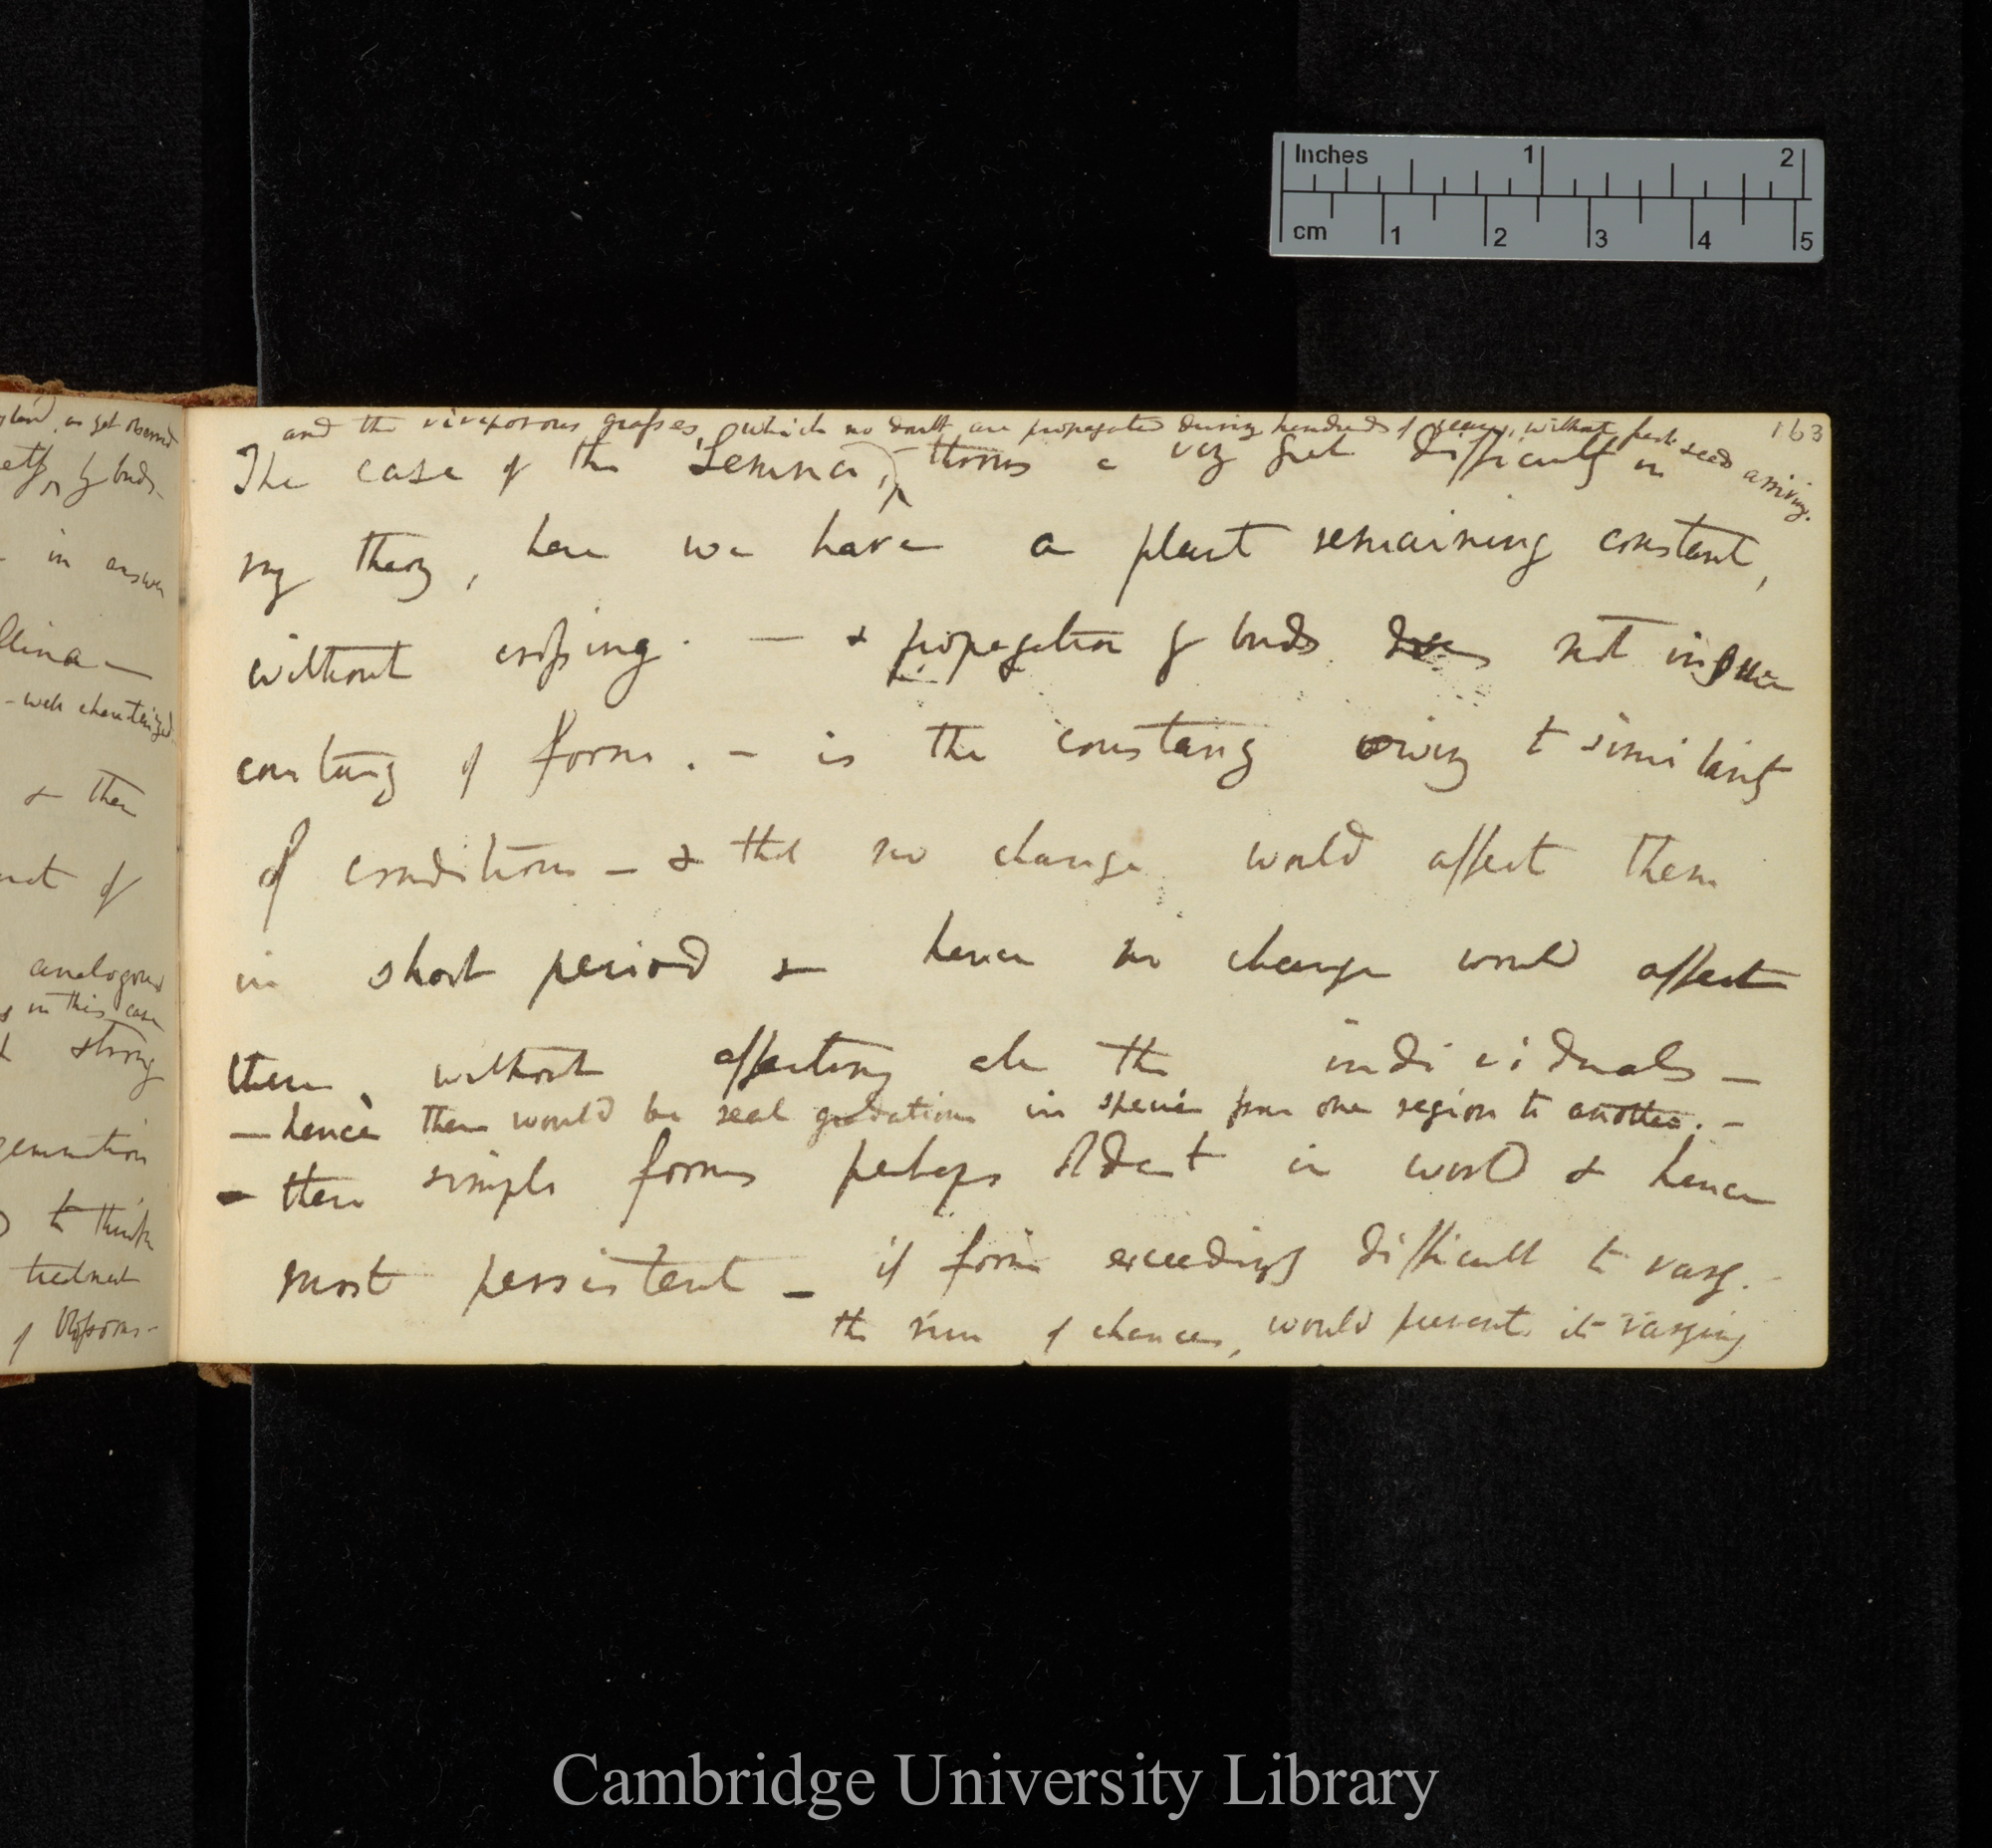 Inches 1 2
cm 1 2 3 4 5
163
and the viviparous grasses, which no doubt are propagated during hundreds of years, without fresh seed arriving.
The case of the Lemna, throws a very great difficulty in
my theory, here we have a plant remaining constant,
without crossing. — & propagation by buds does not insure
constancy of form. — is the constancy owing to similarity
of conditions — & that no change would affect them
in short period & hence no change would affect
them, without affecting all the individuals —
— hence there would be real gradation in species from one region to another. —
— these simple forms perhaps oldest in world & hence
most persistent — if form exceedingly difficult to vary. —
the sum of chances, would prevent it varying
in answer
llina —
– well characterized
& then
of
analogous
in this case
strong
gemmation
to think
treatment
of blossoms –
Cambridge University Library